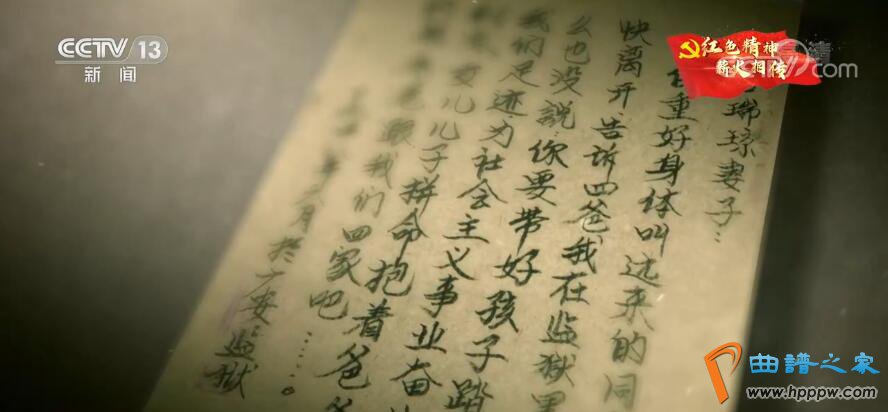 CCTV 13
新闻
红色精神
薪火相传
com
瑞琼妻子：
重好身体叫远来的同
快离开告诉四爸，我在监狱里
么也没説，你要带好孩子踏
我们足迹为社会主义事业奋
女儿儿子拼命抱着爸
跟我们回家吧……。
月于广安监狱
曲谱之家
www.hpppw.com